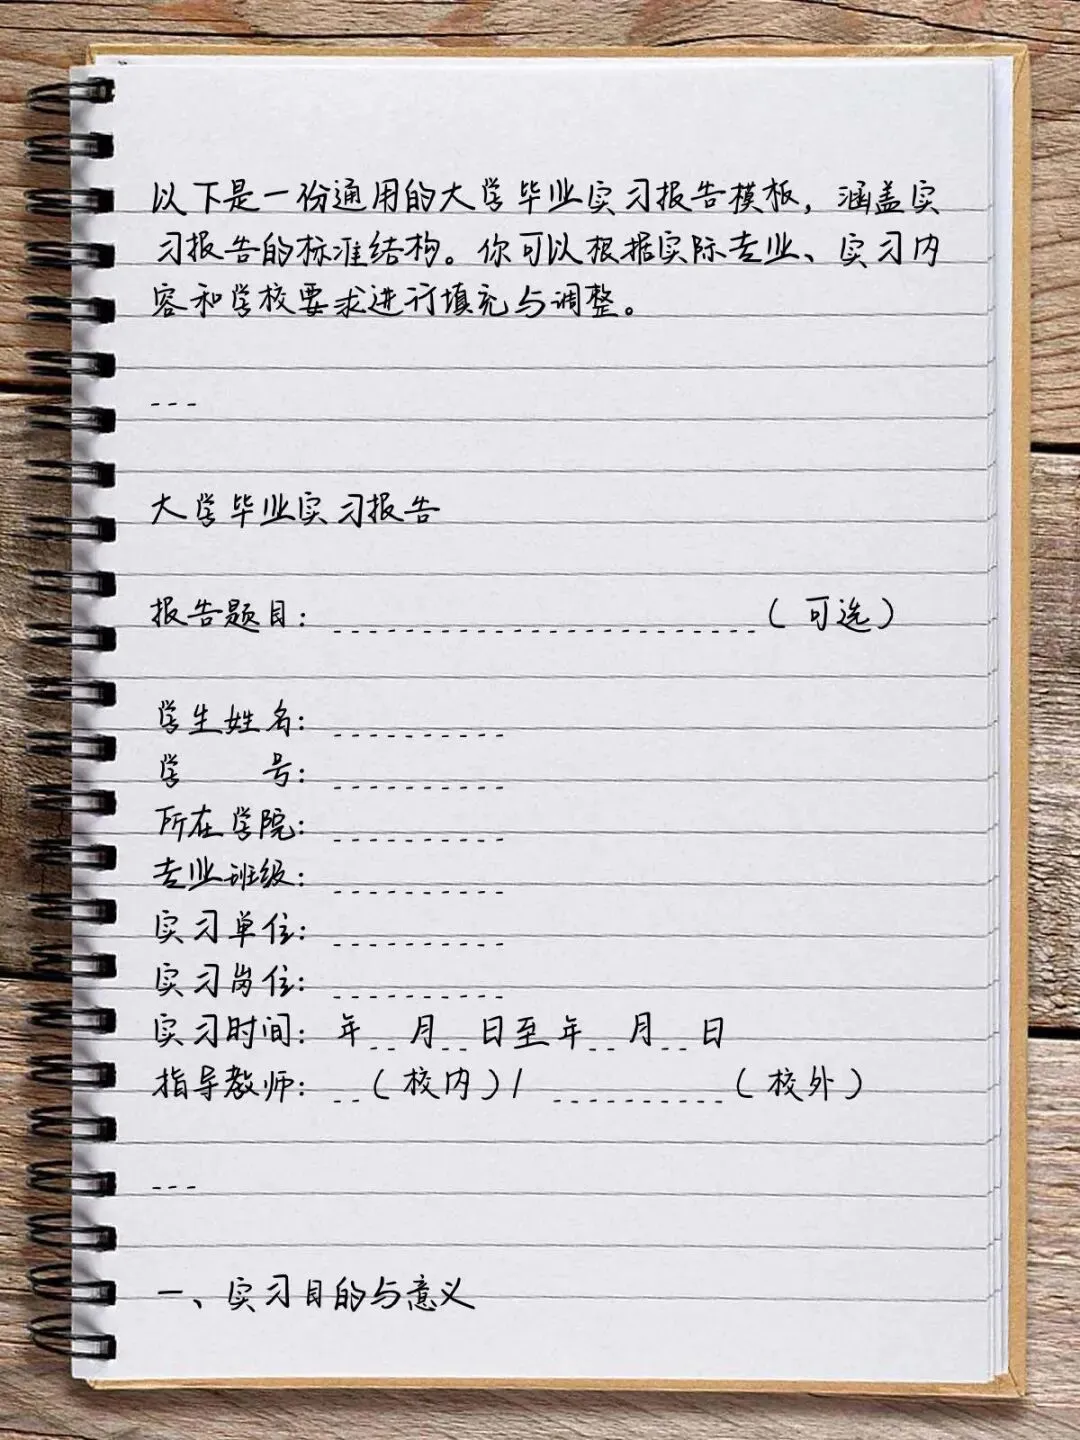 以下是一份通用的大学毕业实习报告模板，涵盖实
习报告的标准结构。你可以根据实际专业、实习内
容和学校要求进行填充与调整。
---
大学毕业实习报告
报告题目：________________________（可选）
学生姓名：__________
学　　号：__________
所在学院：__________
专业班级：__________
实习单位：__________
实习岗位：__________
实习时间：年__月__日至年__月__日
指导教师：__（校内）/ __________（校外）
---
一、实习目的与意义